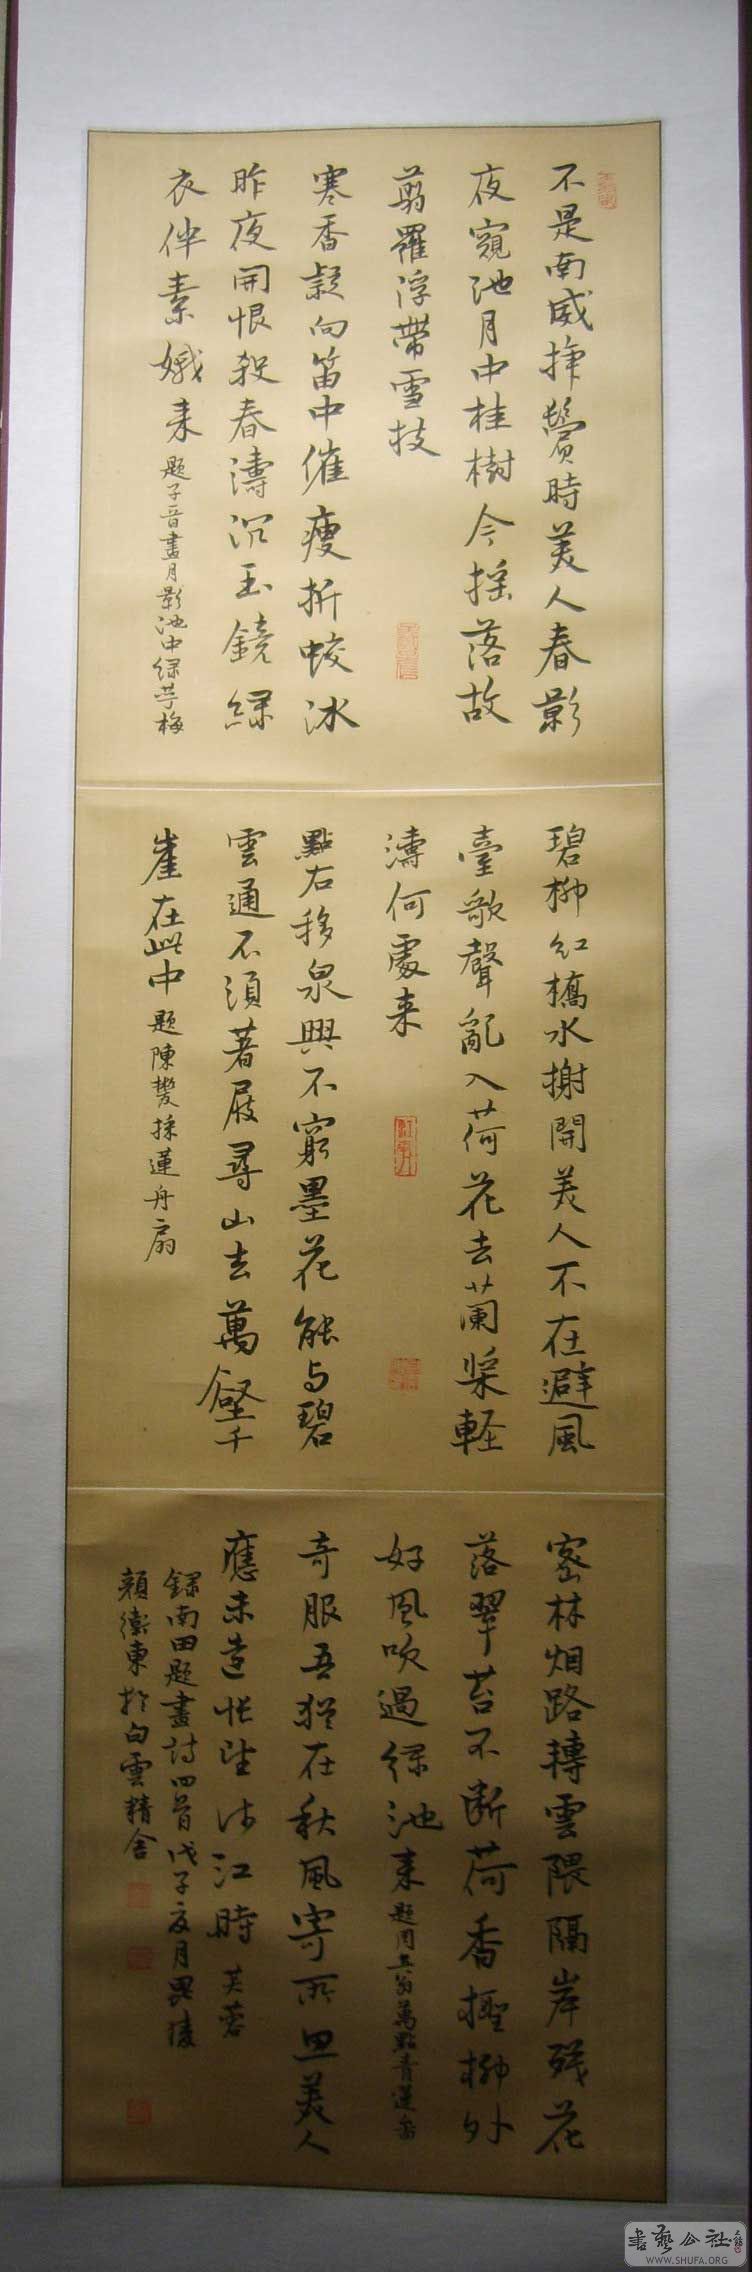 不是南威捧鬢時美人春影
夜窺池月中桂樹今搖落故
剪羅浮帶雪技
寒香疑向笛中催瘦折蛟冰
昨夜開恨殺春濤沉玉鏡綠
衣伴素娥来題子晋畫月影池中綠萼梅
碧柳紅橋水榭開美人不在避風
臺歌聲亂入荷花去蘭槳軽
濤何處来
點右移泉興不窮墨花能与碧
雲通不須著屐尋山去萬壑千
崖在此中題陳鬱採蓮舟扇
密林烟路轉雲隈隔岸殘花
落翠苔不断荷香極柳外
好風吹過綠池来題周吴翁萬點青蓮
奇服吾猶在秋風寄所思美人
應未遠悵望江時芙蓉
録南田題畫詩四首戊子夏月毘陵
顔衛東於白雲精舍
書藝公社
WWW.SHUFA.ORG